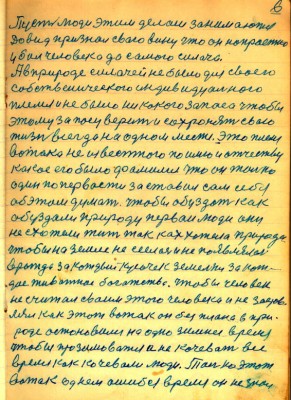 6
Пусть люди этим делом занимаются
Зовид признал свою вину что он напрасно
убил человека до самого
А в природе не было для своего
собственического индивидуального
племя и не было никакого запаса чтобы
этому за поверить и сохронять свою
жизнь всегда на одном месте. Это племя
вотака не известного по имю и отчеству
какое его было фамилия это он только
один по первости заставил сам себя
об этом думать. чтобы обуздот как
обуздали природу первои люди они
не схотели жит так как хотела природа
чтобы на земле не сеелая и не появлялас
вражда за кажъй кусочек земельки за кож-
дае животнае богатство. чтобы человек
не считал своим этого человека и не задов-
лял как этот вотак он без плана в при-
роде остоновили на одно зимнее время
чтобы прозимовати и не кочевать все
время как кочевали люди. Так на этот
вотак одНем ошибся время он не знал